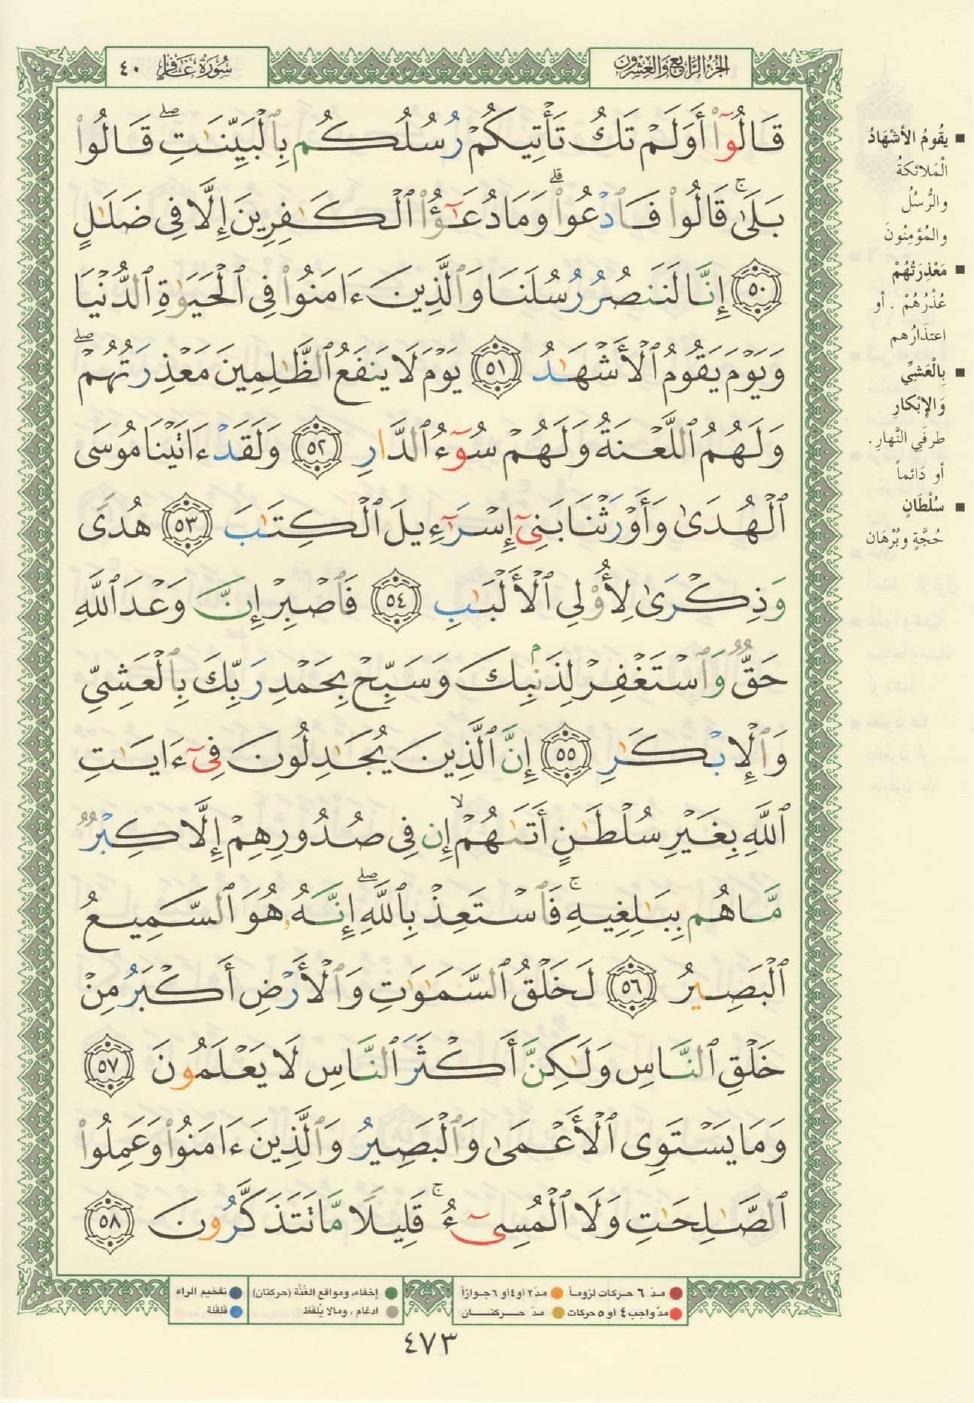 سُورَةُ غَافِرٍ ٤٠
الجُزءُ الرَّابِعُ وَالعِشْرُونَ
قَالُوٓا۟ أَوَلَمْ تَكُ تَأْتِيكُمْ رُسُلُكُم بِٱلْبَيِّنَـٰتِ ۖ قَالُوا۟
بَلَىٰ ۚ قَالُوا۟ فَٱدْعُوا۟ ۗ وَمَا دُعَـٰٓؤُا۟ ٱلْكَـٰفِرِينَ إِلَّا فِى ضَلَـٰلٍ
٥٠ إِنَّا لَنَنصُرُ رُسُلَنَا وَٱلَّذِينَ ءَامَنُوا۟ فِى ٱلْحَيَوٰةِ ٱلدُّنْيَا
وَيَوْمَ يَقُومُ ٱلْأَشْهَـٰدُ ٥١ يَوْمَ لَا يَنفَعُ ٱلظَّـٰلِمِينَ مَعْذِرَتُهُمْ ۖ
وَلَهُمُ ٱللَّعْنَةُ وَلَهُمْ سُوٓءُ ٱلدَّارِ ٥٢ وَلَقَدْ ءَاتَيْنَا مُوسَى
ٱلْهُدَىٰ وَأَوْرَثْنَا بَنِىٓ إِسْرَٰٓءِيلَ ٱلْكِتَـٰبَ ٥٣ هُدًى
وَذِكْرَىٰ لِأُو۟لِى ٱلْأَلْبَـٰبِ ٥٤ فَٱصْبِرْ إِنَّ وَعْدَ ٱللَّهِ
حَقٌّ وَٱسْتَغْفِرْ لِذَنۢبِكَ وَسَبِّحْ بِحَمْدِ رَبِّكَ بِٱلْعَشِىِّ
وَٱلْإِبْكَـٰرِ ٥٥ إِنَّ ٱلَّذِينَ يُجَـٰدِلُونَ فِىٓ ءَايَـٰتِ
ٱللَّهِ بِغَيْرِ سُلْطَـٰنٍ أَتَىٰهُمْ ۙ إِن فِى صُدُورِهِمْ إِلَّا كِبْرٌ
مَّا هُم بِبَـٰلِغِيهِ ۚ فَٱسْتَعِذْ بِٱللَّهِ ۖ إِنَّهُۥ هُوَ ٱلسَّمِيعُ
ٱلْبَصِيرُ ٥٦ لَخَلْقُ ٱلسَّمَـٰوَٰتِ وَٱلْأَرْضِ أَكْبَرُ مِنْ
خَلْقِ ٱلنَّاسِ وَلَـٰكِنَّ أَكْثَرَ ٱلنَّاسِ لَا يَعْلَمُونَ ٥٧
وَمَا يَسْتَوِى ٱلْأَعْمَىٰ وَٱلْبَصِيرُ وَٱلَّذِينَ ءَامَنُوا۟ وَعَمِلُوا۟
ٱلصَّـٰلِحَـٰتِ وَلَا ٱلْمُسِىٓءُ ۚ قَلِيلًا مَّا تَتَذَكَّرُونَ ٥٨
يَقُومُ الأَشْهَادُ
الْمَلائكةُ
والرُّسُلُ
والمُؤْمِنُونَ
مَعْذِرَتُهُمْ
عُذْرُهُمْ . أو
اعتذَارُهم
بِالْعَشِيِّ
وَالإِبْكَارِ
طرفَيِ النَّهارِ .
أو دَائماً
سُلْطَانٍ
حُجَّةٍ وبُرْهَان
مدّ ٦ حركات لزوماً
مدّ ٢ أو ٤ أو ٦ جوازاً
إخفاء، ومواقع الغنّة (حركتان)
تفخيم الراء
مدّ واجب ٤ أو ٥ حركات
مدّ حركتان
ادغام ، ومالا يُلفظ
قلقلة
٤٧٣